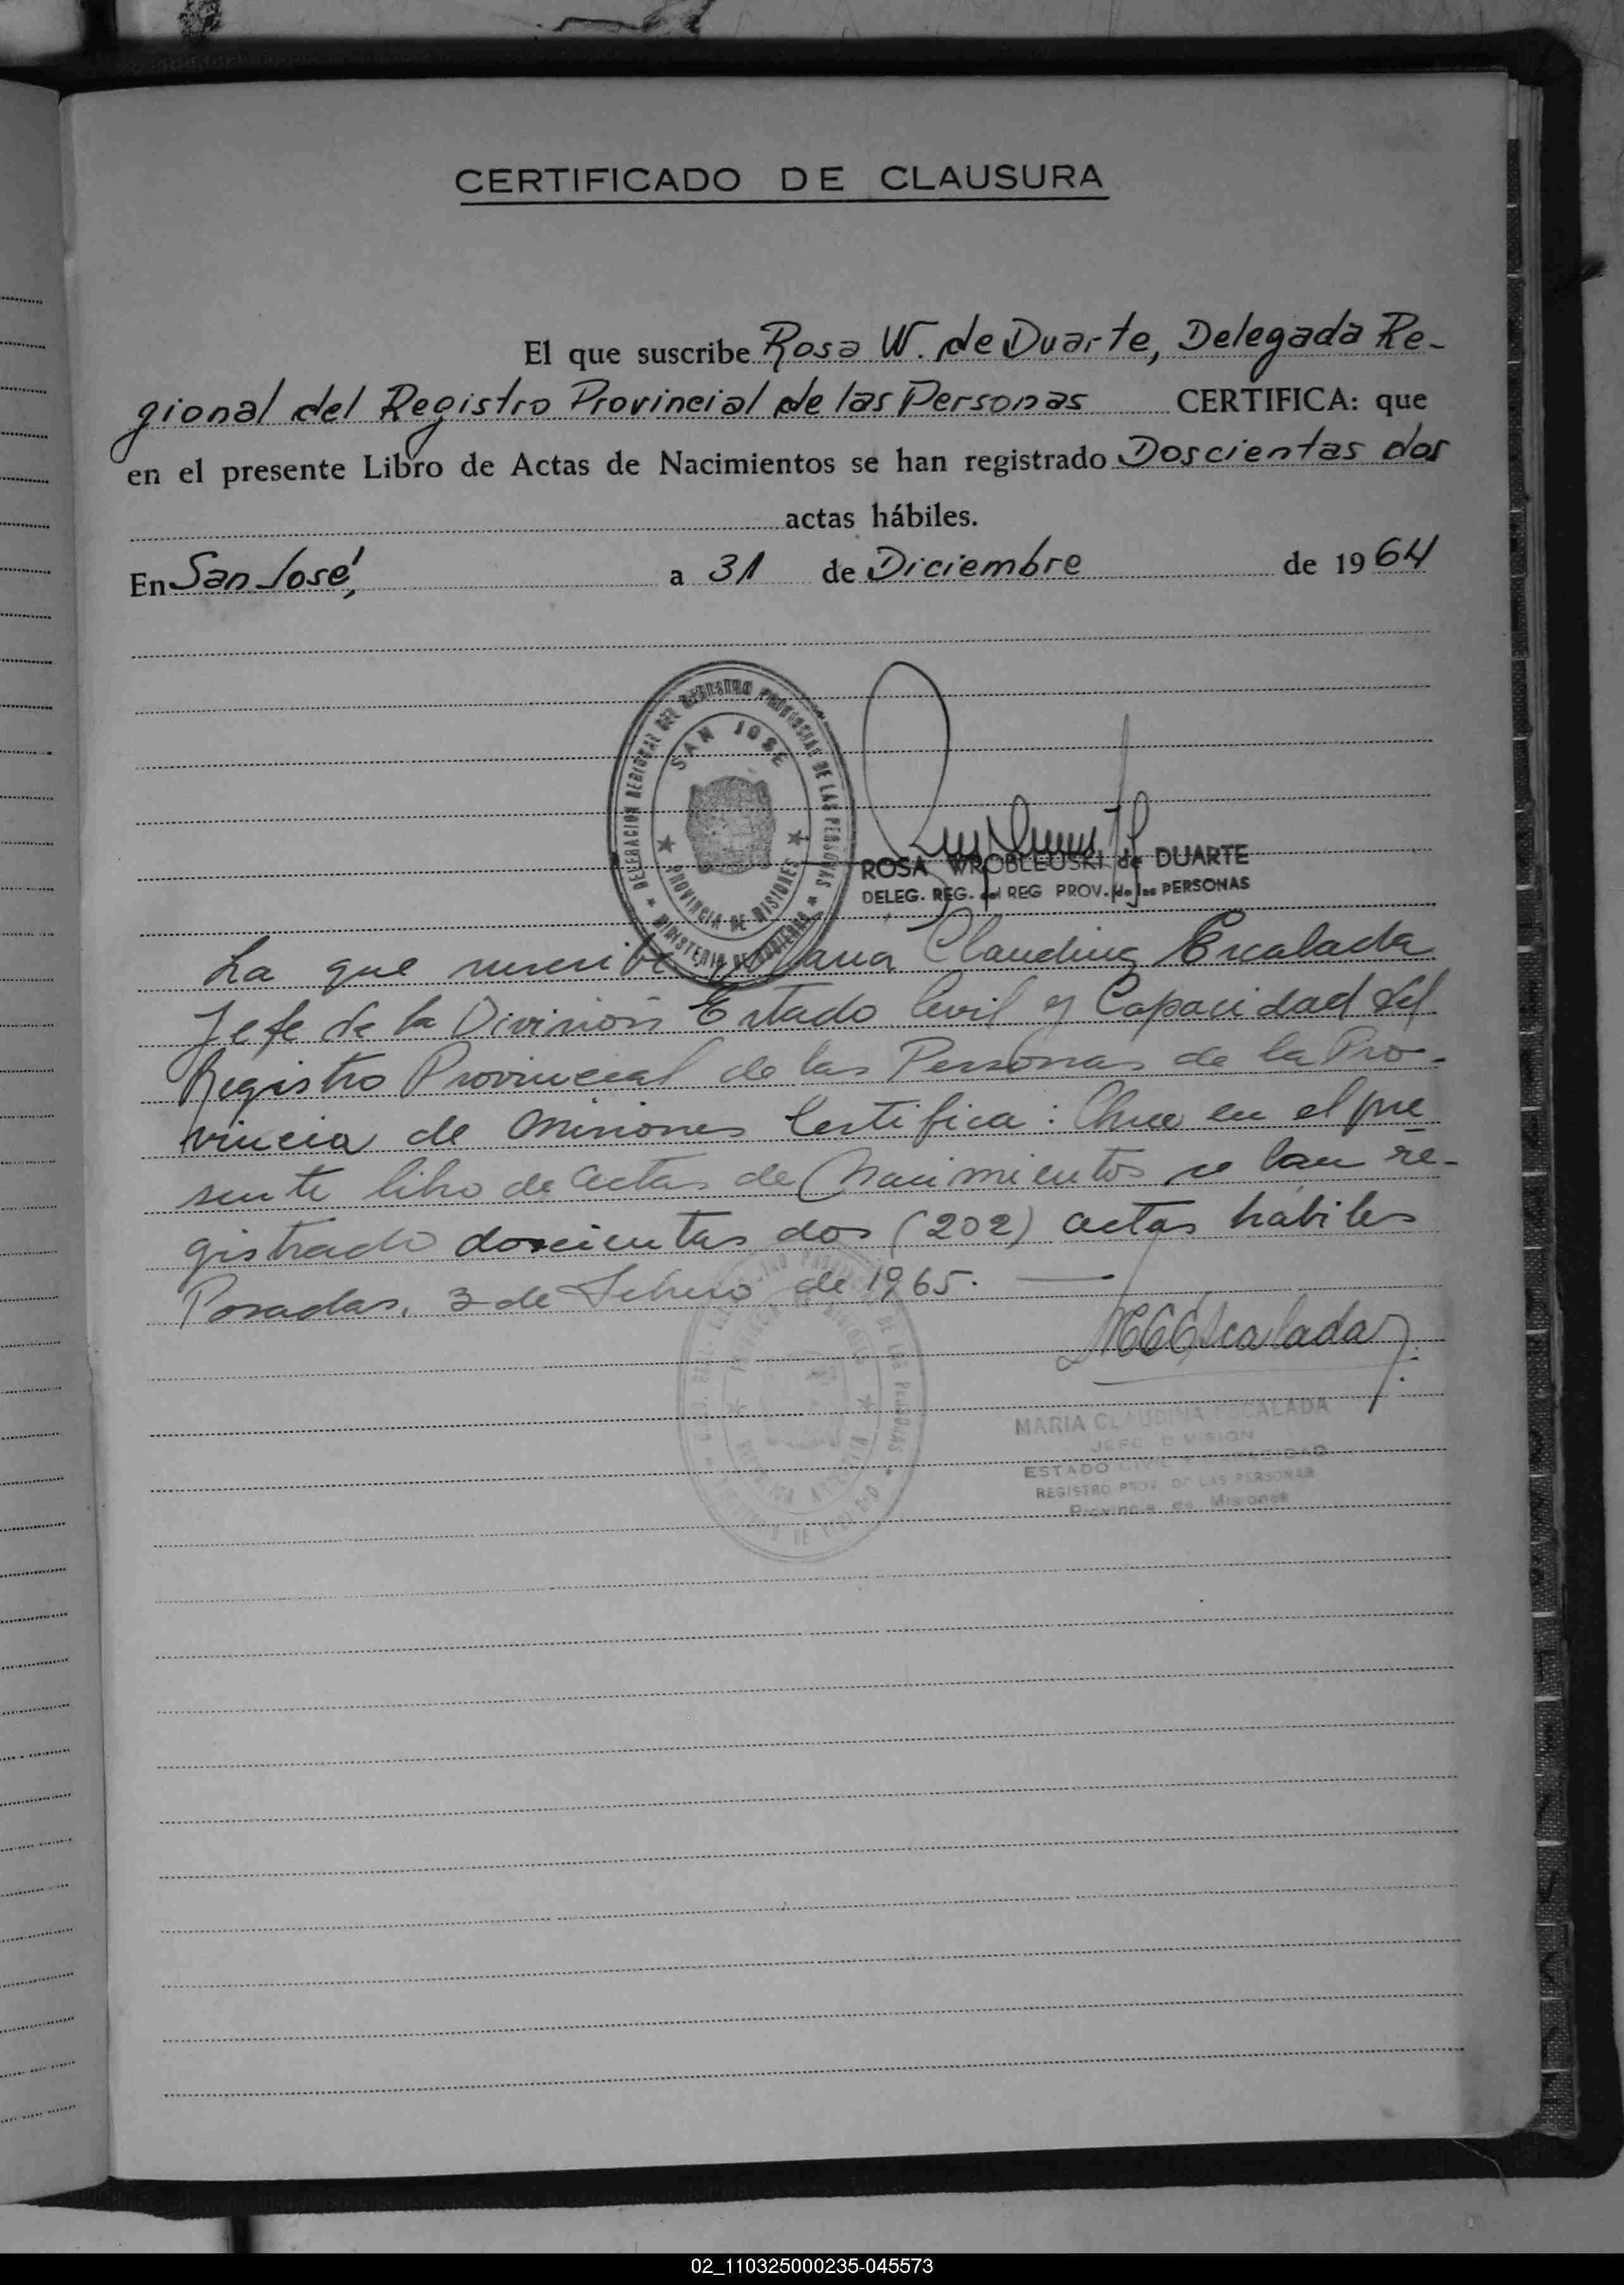 CERTIFICADO DE CLAUSURA
El que suscribe Rosa W. de Duarte, Delegada Re-
gional del Registro Provincial de las Personas CERTIFICA: que
en el presente Libro de Actas de Nacimientos se han registrado Doscientas dos
actas hábiles.
En San José, a 31 de Diciembre de 1964
DELEGACION REGIONAL DEL REGISTRO PROVINCIAL DE LAS PERSONAS
SAN JOSE
PROVINCIA DE MISIONES
MINISTERIO DE GOBIERNO
ROSA WROBLEUSKI de DUARTE
DELEG. REG. del REG PROV. de las PERSONAS
La que suscribe Maria Claudina Escalada
Jefe de la División Estado Civil y Capacidad del
Registro Provincial de las Personas de la Pro-
vincia de Misiones Certifica: Que en el pre
sente libro de actas de Nacimientos se han re-
gistrado doscientas dos (202) actas hábiles
Posadas, 3 de Febrero de 1965.
MCEscalada
MARIA CLAUDINA ESCALADA
JEFE DIVISION
ESTADO CIVIL Y CAPACIDAD
REGISTRO PROV. DE LAS PERSONAS
Provincia de Misiones
02_110325000235-045573